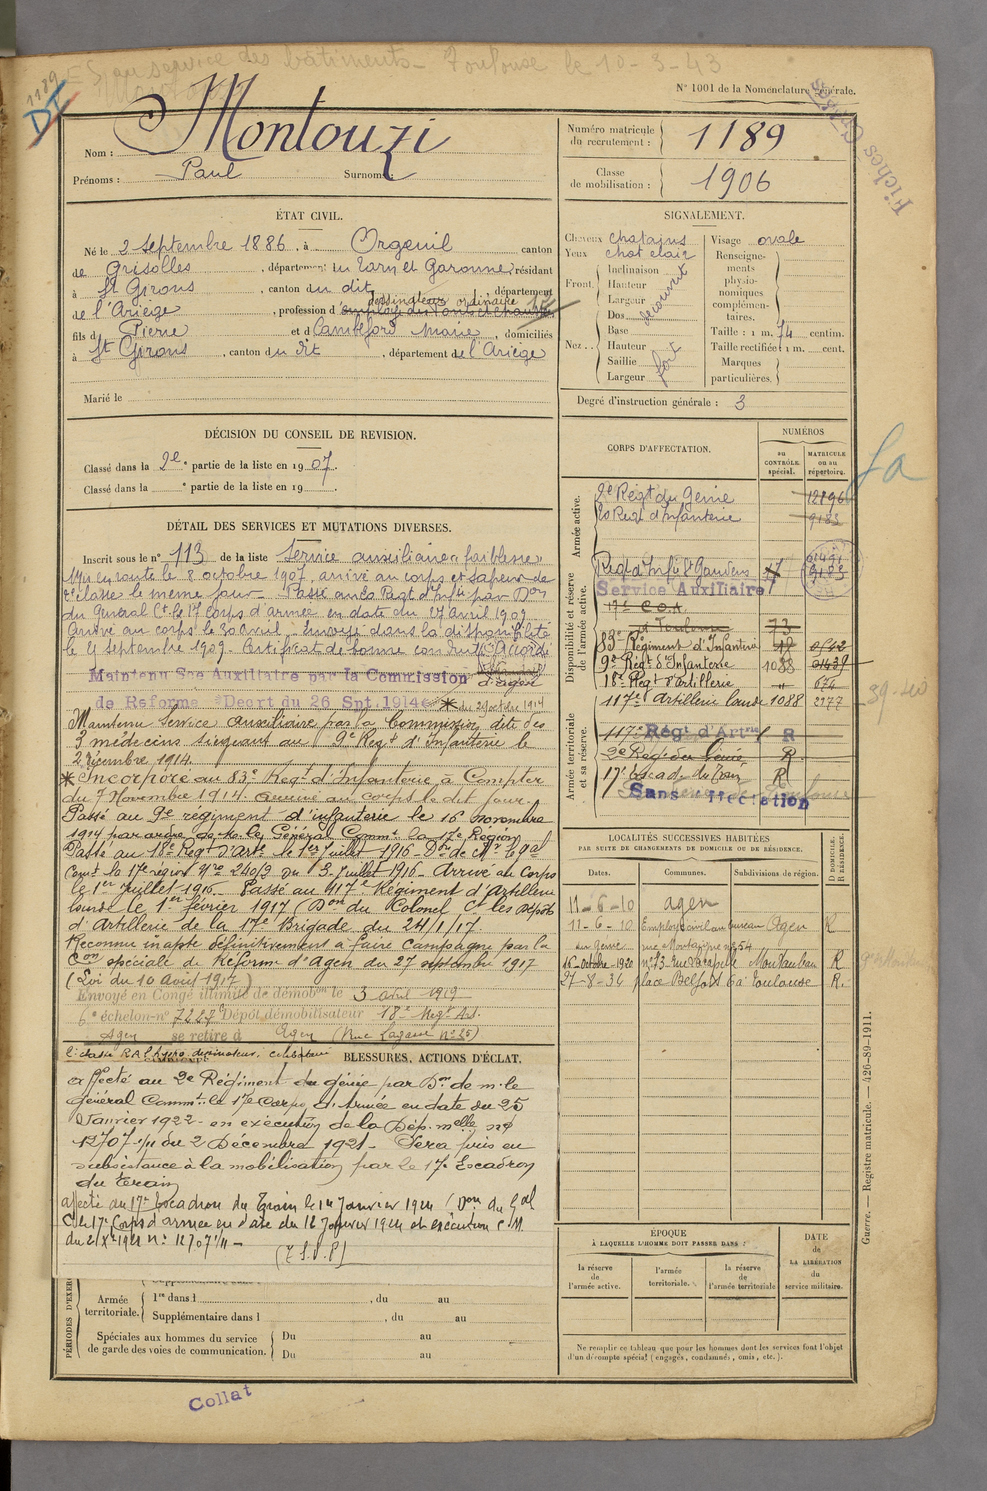 au service des bâtiments - Toulouse le 10-3-43
1189
N° 1001 de la Nomenclature générale.
Fiches
Nom : Montouzi
Prénoms : Paul Surnoms :
Numéro matricule du recrutement : 1189
Classe de mobilisation : 1906
ÉTAT CIVIL.
Né le 2 septembre 1886, à Orgueil canton
de Grisolles, département du Tarn et Garonne, résidant
à St Girons, canton du dit, département
dessinateur ordinaire
de l'Ariège, profession d'employé des Ponts et chaussées
fils de Pierre et de Marie, domiciliés
à St Girons, canton du dit, département de l'Ariège
Marié le
SIGNALEMENT.
Cheveux chatains
Yeux chat clair
Front. Inclinaison
Hauteur
Largeur
découvert
Nez.. Dos
Base
Hauteur
Saillie
Largeur
fort
Visage ovale
Renseignements physionomiques complémentaires.
Taille : 1 m. 74 centim.
Taille rectifiée : 1 m. cent.
Marques particulières.
Degré d'instruction générale : 3
DÉCISION DU CONSEIL DE REVISION.
Classé dans la 2e partie de la liste en 1907.
Classé dans la e partie de la liste en 19 .
DÉTAIL DES SERVICES ET MUTATIONS DIVERSES.
Inscrit sous le n° 113 de la liste Service auxiliaire "faiblesse"
Mis en route le 8 octobre 1907, arrivé au corps et sapeur de
2e classe le même jour - Passé au 20 Regt d'Infie par Don
du Général Ct le 17 Corps d'armée en date du 27 avril 1909
Arrivé au corps le 30 avril - Envoyé dans la disponibilité
le 4 septembre 1909. Certificat de bonne conduite Accordé
Maintenu Sce Auxiliaire par la Commission
d'Agen
de Réforme Décrt du 26 Spt. 1914 * du 29 octobre 1914
Maintenu Service auxiliaire par la Commission dite des
3 médecins siégeant au 9e Regt d'Infanterie le
2 Décembre 1914.
* Incorporé au 83e Regt d'Infanterie à Compter
du 7 Novembre 1914. arrivé au corps le dit jour.
Passé au 9e régiment d'infanterie le 16 novembre
1914 par ordre de M. le Général Commt la 17e Région
Passé au 18e Regt d'Arte le 1er Juillet 1916 - Don de Mr le Gal
Comt la 17e région No 240/3 du 3 Juillet 1916 - Arrivé au Corps
le 1er Juillet 1916. Passé au 117e Régiment d'Artillerie
lourde le 1er février 1917 (Don du Colonel Ct les Dépots
d'Artillerie de la 17e Brigade du 24/1/17.
Reconnu inapte définitivement à faire campagne par la
Con spéciale de Réforme d'Agen du 27 septembre 1917
(Loi du 10 Août 1917)
Envoyé en Congé illimité de démobon le 3 avril 1919
6e échelon - no 7227 Dépôt démobilisateur 18e Regt Art.
Agen se retire à Agen (Rue Lagasse No 25)
BLESSURES, ACTIONS D'ÉCLAT.
affecté au 2e Régiment du génie par Don de m. le
général Commt le 17e Corps d'Armée en date du 25
Janvier 1922 - en exécution de la Dép. melle no
12707 1/11 du 2 Décembre 1921 - Sera pris en
subsistance à la mobilisation par le 17e Escadron
du train
affecté au 17e Escadron du Train le 1er Janvier 1924 (Don du Gal
Ct le 17e Corps d'armée en date du 12 Janvier 1924 et exécution C M
du 2 Xbre 1921 No 12707 1/11 -
(T.S.V.P)
PÉRIODES D'EXER
Armée territoriale.
1re dans l , du au
Supplémentaire dans l , du au
Spéciales aux hommes du service de garde des voies de communication.
Du au
Du au
CORPS D'AFFECTATION.
NUMÉROS
au CONTRÔLE spécial.
MATRICULE ou au répertoire.
Armée active.
2e Regt du Génie 12896
20 Regt d'Infanterie 9183
Disponibilité et réserve de l'armée active.
Regt d'Infie St Gaudens 9183
Service Auxiliaire
17e C.O.A.
Toulouse 73
83e Régiment d'Infanterie
9e Regt d'Infanterie 1088
18e Regt d'Artillerie " 674
117e d'Artillerie lourde 1088 2977
39-210
Armée territoriale et sa réserve.
117e Régt d'Artrie R
2e Reg du Génie R
17e Escad du Train R
Sans affectation
LOCALITÉS SUCCESSIVES HABITÉES
PAR SUITE DE CHANGEMENTS DE DOMICILE OU DE RÉSIDENCE.
Dates. Communes. Subdivisions de région. D DOMICILE. R RÉSIDENCE.
11-6-10 Agen
11-6-10 Employé civil au bureau Agen R
du génie rue Montaigne no 54
16 octobre 1920 no 13 rue Lacapelle Montauban R
27-8-34 place Belfort 6a Toulouse R.
ÉPOQUE
À LAQUELLE L'HOMME DOIT PASSER DANS :
la réserve de l'armée active.
l'armée territoriale.
la réserve de l'armée territoriale
DATE de LA LIBÉRATION du service militaire.
Ne remplir ce tableau que pour les hommes dont les services font l'objet
d'un décompte spécial (engagés, condamnés, omis, etc.).
Guerre. — Registre matricule. — 426-89-1911.
Collat